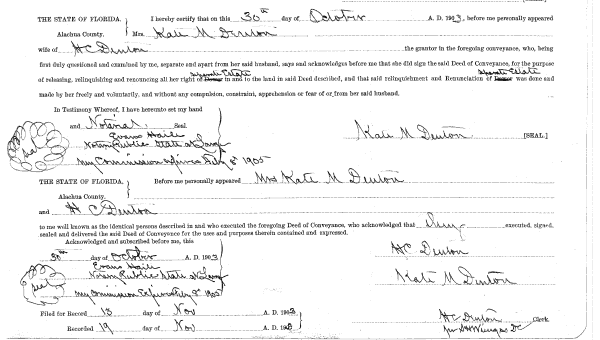 THE STATE OF FLORIDA. I hereby certify that on this 30th day of October A. D. 1903, before me personally appeared
Alachua County. Mrs Kate M Denton
wife of H C Denton the grantor in the foregoing conveyance, who, being
first duly questioned and examined by me, separate and apart from her said husband, says and acknowledges before me that she did sign the said Deed of Conveyance, for the purpose
Separate Estate Separate Estate
of releasing, relinquishing and renouncing all her right of Dower in and to the land in said Deed described, and that said relinquishment and Renunciation of Dower was done and
made by her freely and voluntarily, and without any compulsion, constraint, apprehension or fear of or from her said husband.
In Testimony Whereof, I have hereunto set my hand
and Notarial Seal.
Evans Haile
Notary Public State at Large
seal
Kate M Denton [SEAL.]
My Commission Expires Feby 8th 1905
THE STATE OF FLORIDA. Before me personally appeared Mrs Kate M Denton
Alachua County.
and H C Denton
to me well known as the identical persons described in and who executed the foregoing Deed of Conveyance, who acknowledged that they executed, signed,
sealed and delivered the said Deed of Conveyance for the uses and purposes therein contained and expressed.
Acknowledged and subscribed before me, this
30th day of October A. D. 1903
HC Denton
Evans Haile
Notary Public State at Large
seal
Kate M Denton
My Commission Expires Feby 8th 1905
Filed for Record 13 day of Nov A. D. 1903
HC Denton Clerk.
Recorded 19 day of Nov A. D. 1903
DC